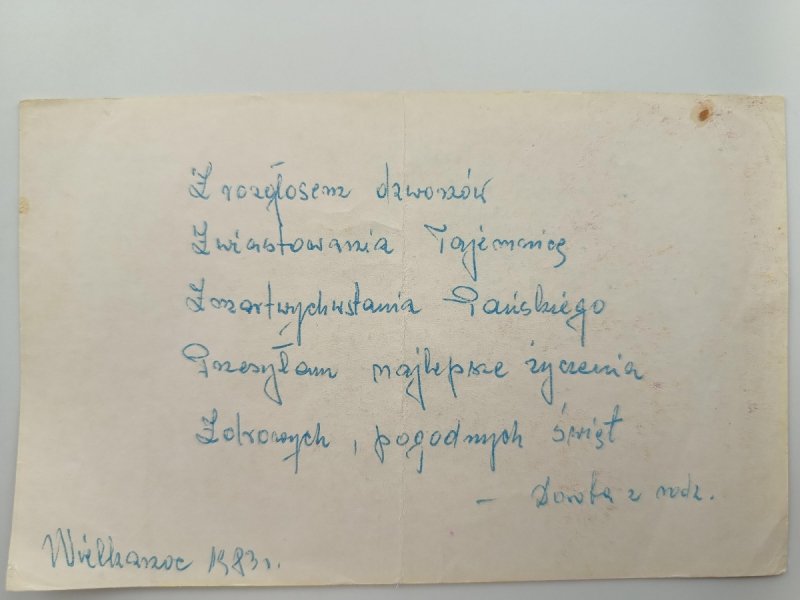 Z rozgłosem dzwonów
Zwiastowania Tajemnicę
Zmartwychwstania Pańskiego
Przesyłam najlepsze życzenia
Zdrowych, pogodnych Świąt
– Dorota z rodz.
Wielkanoc 1983 r.